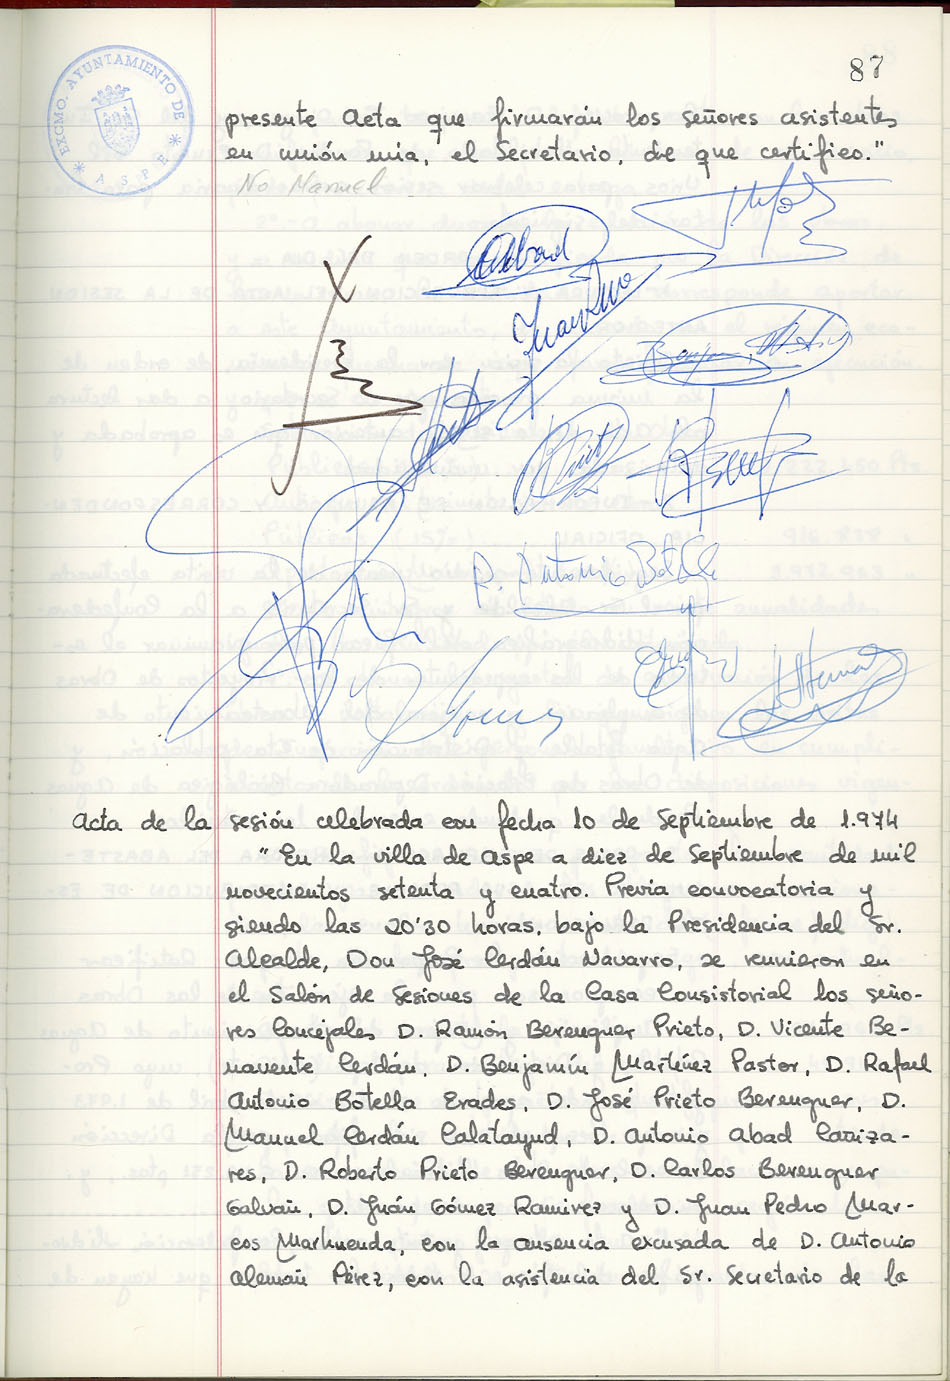 87
EXCMO. AYUNTAMIENTO DE
* ASPE *
presente Acta que firmarán los señores asistentes
en unión mia, el Secretario, de que certifico."
No Manuel
Abad
Juan
R. Antonio Botella
Acta de la sesión celebrada con fecha 10 de Septiembre de 1.974
"En la villa de Aspe a diez de Septiembre de mil
novecientos setenta y cuatro. Previa convocatoria y
siendo las 20'30 horas, bajo la Presidencia del Sr.
Alcalde, Don José Cerdán Navarro, se reunieron en
el Salón de Sesiones de la Casa Consistorial los seño-
res Concejales D. Ramón Berenguer Prieto, D. Vicente Be-
navente Cerdán, D. Benjamín Martínez Pastor, D. Rafael
Antonio Botella Erades, D. José Prieto Berenguer, D.
Manuel Cerdán Calatayud, D. Antonio Abad Cañiza-
res, D. Roberto Prieto Berenguer, D. Carlos Berenguer
Galvañ, D. Juán Gómez Ramirez y D. Juan Pedro Mar-
cos Marhuenda, con la ausencia excusada de D. Antonio
Alemañ Pérez, con la asistencia del Sr. Secretario de la